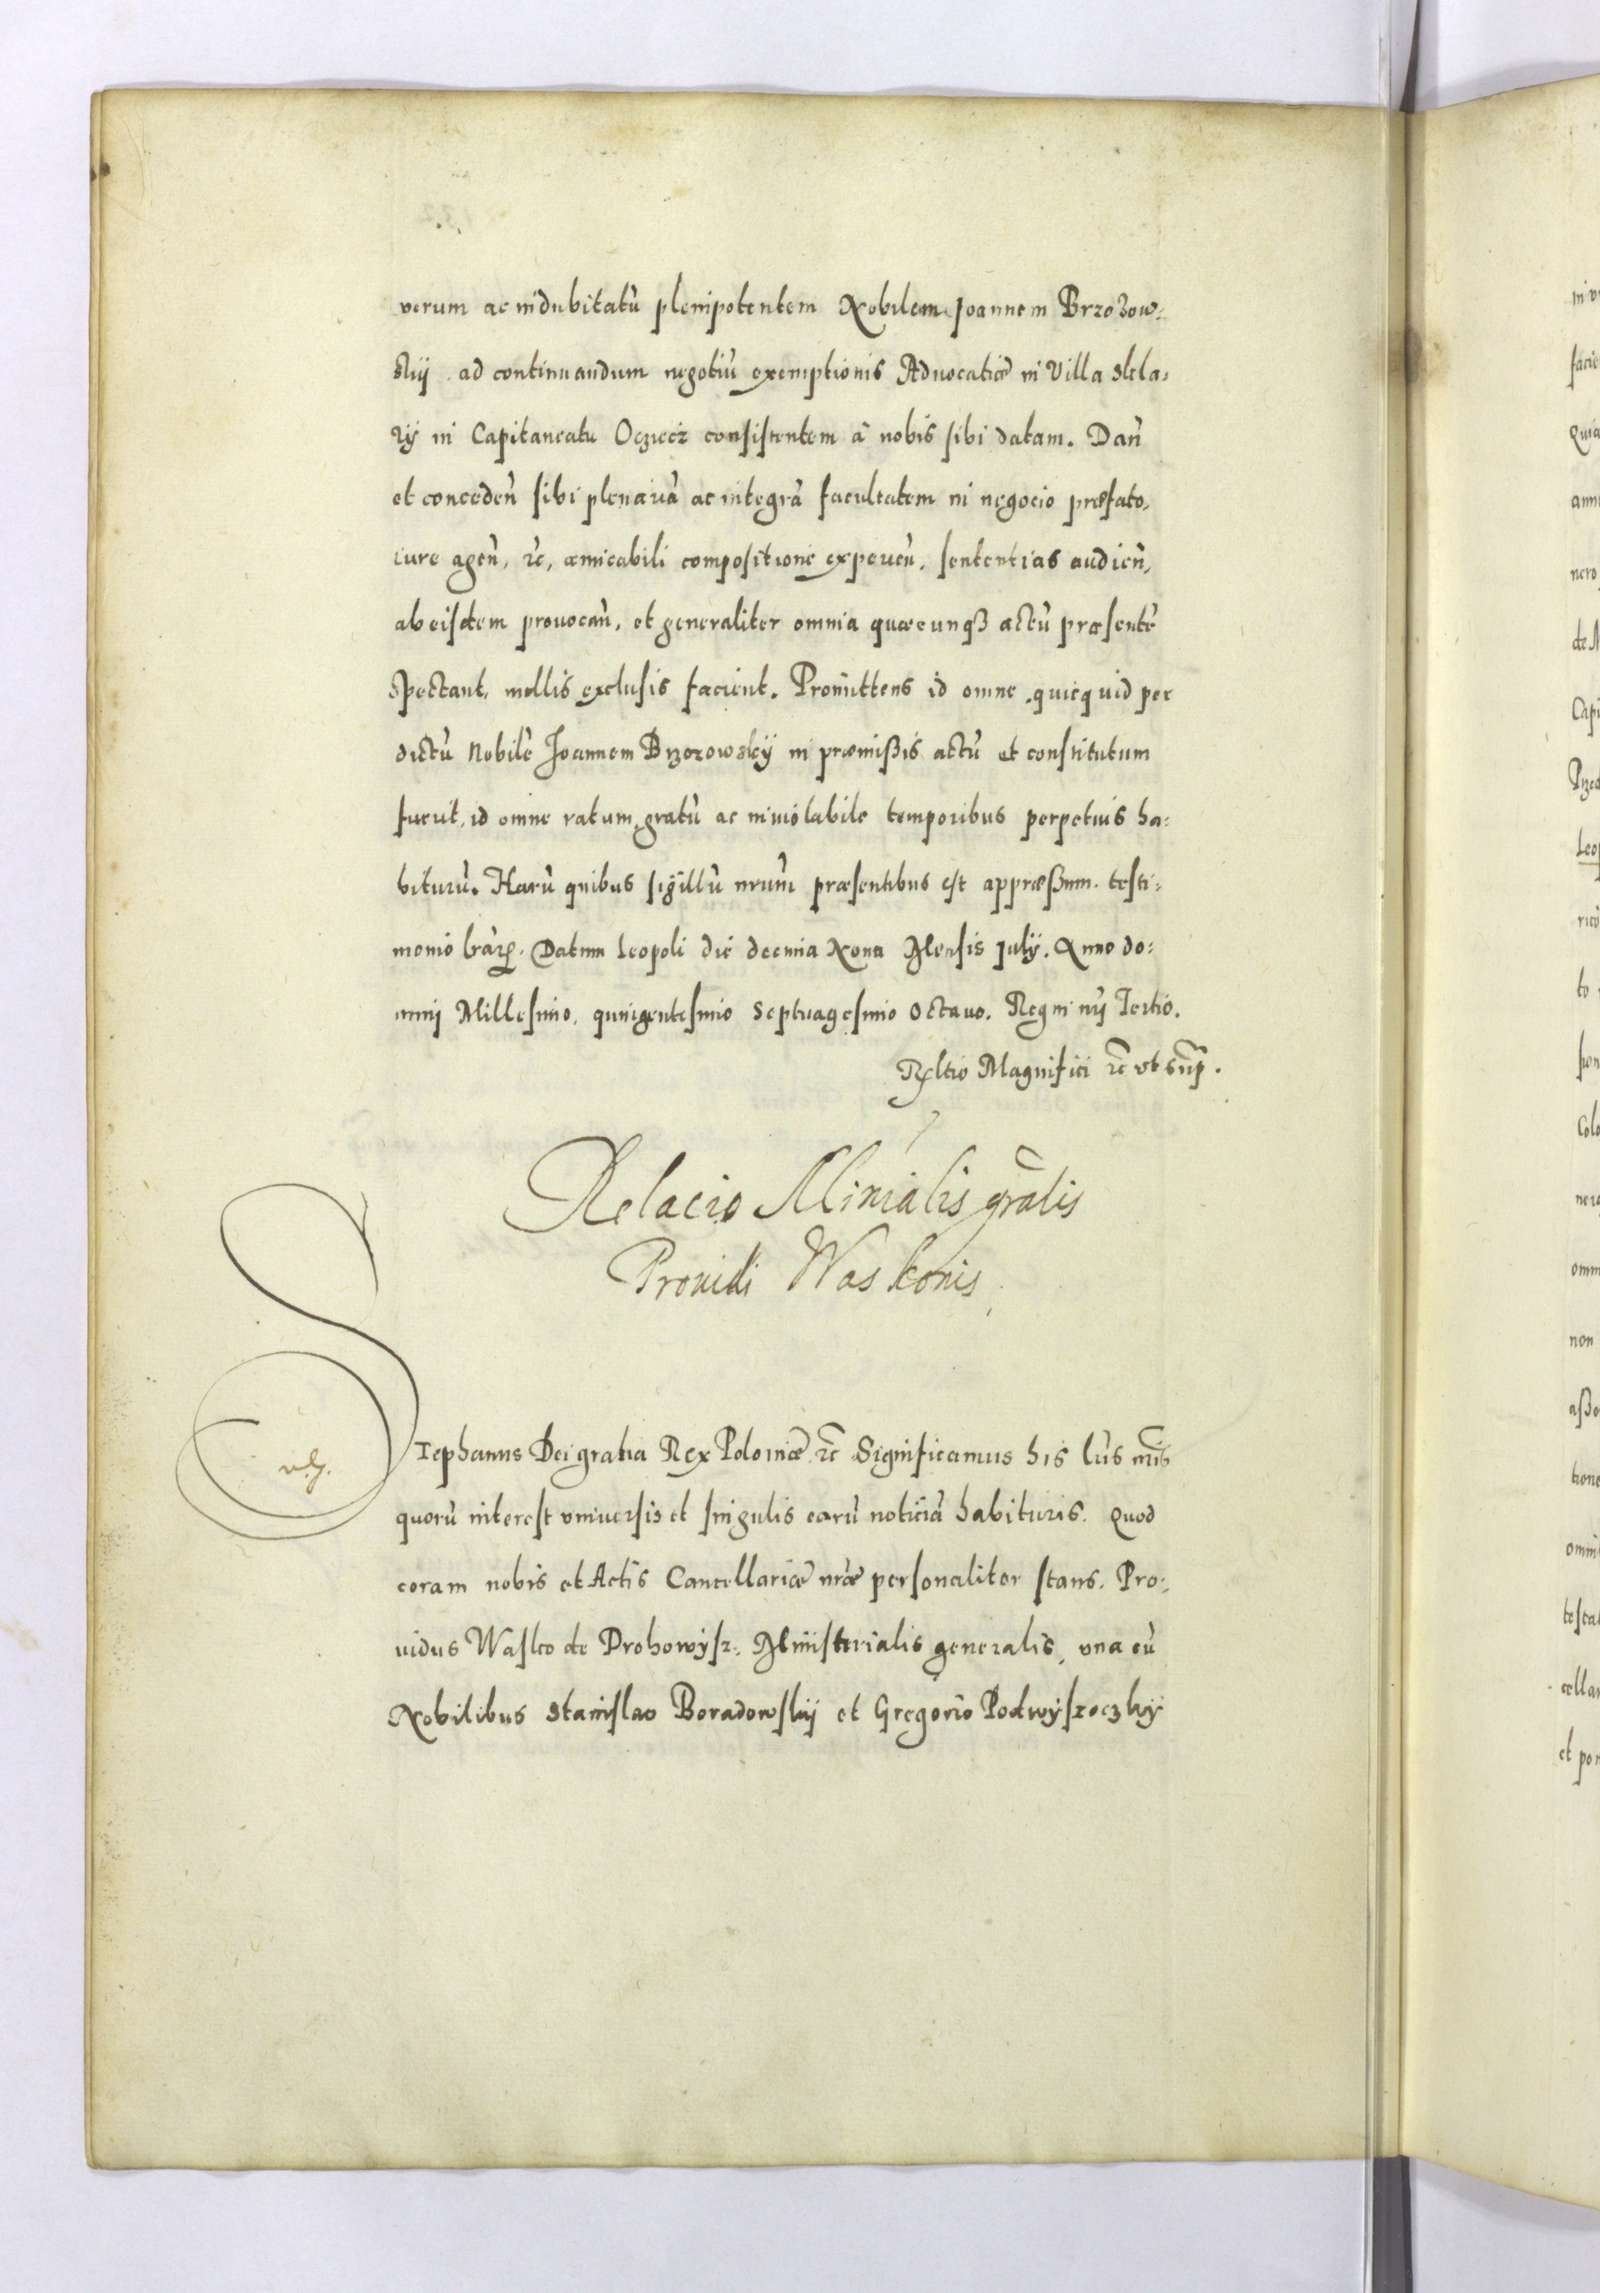 verum ac indubitatũ plenipotentem Nobilem Joannem Brzozow-
skij ad continuandum negotiũ exemptionis Aduocatiæ in Villa Skla-
ry in Capitaneatu consistentem à nobis sibi datam. Dañ
et concedeñ sibi plenariã ac integrã facultatem in negocio præfato,
iure ageñ, rc, amicabili compositione experieñ, sententias audieñ,
ab eisdem prouocañ, et generaliter omnia quæcunqз actũ præsentẽ
spectant, mollis exclusis facient. Promittens id omne quicquid per
dictũ Nobilẽ Joannem Brzozowskij in præmißis actũ et constitutum
fuerit, id omne ratum, gratũ ac inuiolabile temporibus perpetuis ha-
biturũ. Harũ quibus sigillũ nrum̃ præsentibus est appræßum. testi-
monio lrãrꝝ. Datum Leopoli die decima Nona Mensis Julij. Anno do-
mini Millesimo, quingentesimo Septuagesimo Octauo. Regni nrj Tertio.
Rltio Magnifici rc̃ vt sup̃.
Relacio Minialis gr̃alis
Prouidi Waskonis
Stephanus Dei gratia Rex Poloniæ rc̃ Significamus his lr̃is nr̃is
quorũ interest vniuersis et singulis earũ noticiã habituris. Quod
coram nobis et Actis Cancellariæ nr̃æ personaliter stans. Pro-
uidus Wasko de Drohowysz. Ministerialis generalis, vna cũ
Nobilibus Stanislao Boradowskij et Gregorio Podwysoczky